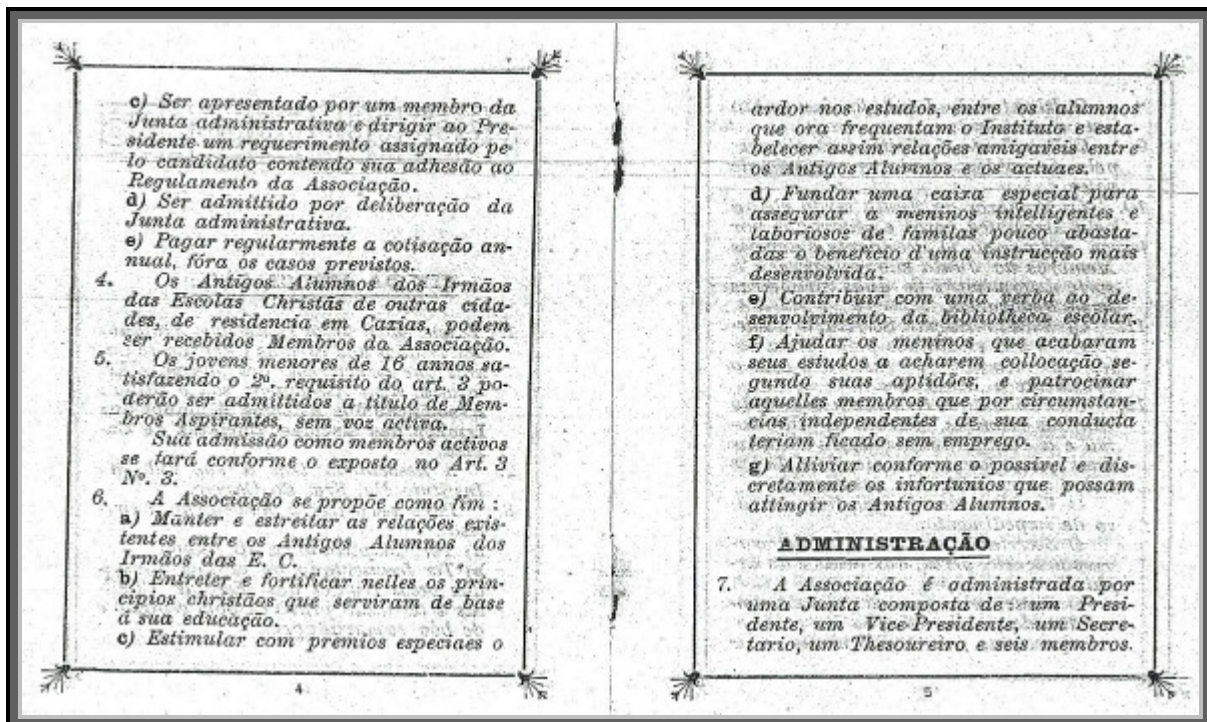 c) Ser apresentado por um membro da
Junta administrativa e dirigir ao Pre-
sidente um requerimento assignado pe-
lo candidato contendo sua adhesão ao
Regulamento da Associação.
d) Ser admittido por deliberação da
Junta administrativa.
e) Pagar regularmente a cotisação an-
nual, fóra os casos previstos.
4. Os Antigos Alumnos dos Irmãos
das Escolas Christãs de outras cida-
des, de residencia em Caxias, podem
ser recebidos Membros da Associação.
5. Os jovens menores de 16 annos sa-
tisfazendo o 2º. requisito do art. 3 po-
derão ser admittidos a titulo de Mem-
bros Aspirantes, sem voz activa.
Sua admissão como membros activos
se fará conforme o exposto no Art. 3
Nº. 3.
6. A Associação se propõe como fim :
a) Manter e estreitar as relações exis-
tentes entre os Antigos Alumnos dos
Irmãos das E. C.
b) Entreter e fortificar nelles os prin-
cipios christãos que serviram de base
á sua educação.
c) Estimular com premios especiaes o
4
ardor nos estudos, entre os alumnos
que ora frequentam o Instituto e esta-
belecer assim relações amigaveis entre
os Antigos Alumnos e os actuaes.
d) Fundar uma caixa especial para
assegurar a meninos intelligentes e
laboriosos de familas pouco abasta-
das o beneficio d'uma instrucção mais
desenvolvida.
e) Contribuir com uma verba ao de-
senvolvimento da bibliotheca escolar.
f) Ajudar os meninos que acabaram
seus estudos a acharem collocação se-
gundo suas aptidões, e patrocinar
aquelles membros que por circumstan-
cias independentes de sua conducta
teriam ficado sem emprego.
g) Alliviar conforme o possivel e dis-
cretamente os infortunios que possam
attingir os Antigos Alumnos.
ADMINISTRAÇÃO
7. A Associação é administrada por
uma Junta composta de um Presi-
dente, um Vice-Presidente, um Secre-
tario, um Thesoureiro e seis membros.
5